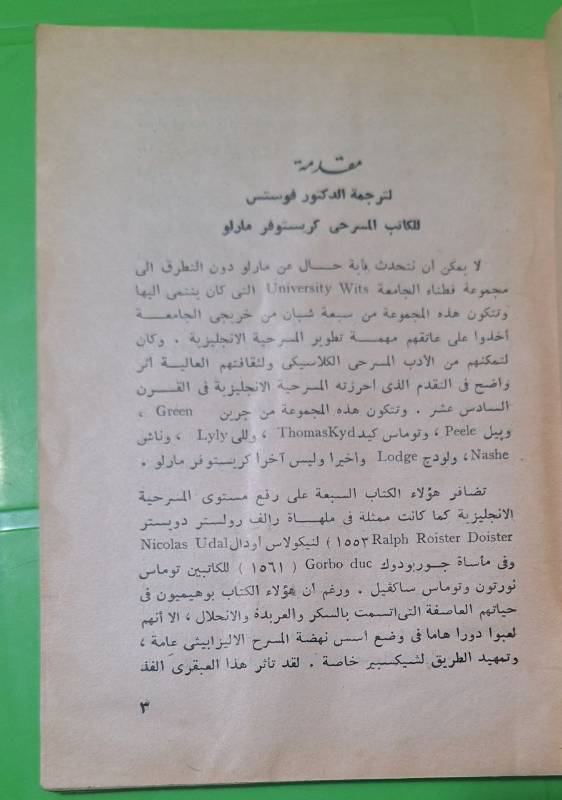 مقدمة
لترجمة الدكتور فوستس
للكاتب المسرحى كريستوفر مارلو
لا يمكن أن نتحدث بأية حال عن مارلو دون التطرق الى
مجموعة فطناء الجامعة University Wits التى كان ينتمى اليها
وتتكون هذه المجموعة من سبعة شبان من خريجى الجامعة
أخذوا على عاتقهم مهمة تطوير المسرحية الانجليزية . وكان
لتمكنهم من الأدب المسرحى الكلاسيكى ولثقافتهم العالية أثر
واضح فى التقدم الذى أحرزته المسرحية الانجليزية فى القرن
السادس عشر . وتتكون هذه المجموعة من جرين Green ،
وپيل Peele ، وتوماس كيد ThomasKyd ، وللى Lyly ، وناش
Nashe ، ولودج Lodge وأخيرا وليس آخرا كريستوفر مارلو .
تضافر هؤلاء الكتاب السبعة على رفع مستوى المسرحية
الانجليزية كما كانت ممثلة فى ملهاة رالف رولستر دويستر
Ralph Roister Doister ١٥٥٣ ) لنيكولاس أودال Nicolas Udal
وفى مأساة جوربودوك Gorbo duc ( ١٥٦١ ) للكاتبين توماس
نورتون وتوماس ساكفيل . ورغم أن هؤلاء الكتاب بوهيميون فى
حياتهم العاصفة التى اتسمت بالسكر والعربدة والانحلال ، الا أنهم
لعبوا دورا هاما فى وضع اسس نهضة المسرح الاليزابيثى عامة ،
وتمهيد الطريق لشيكسبير خاصة . لقد تأثر هذا العبقرى الفذ
٣